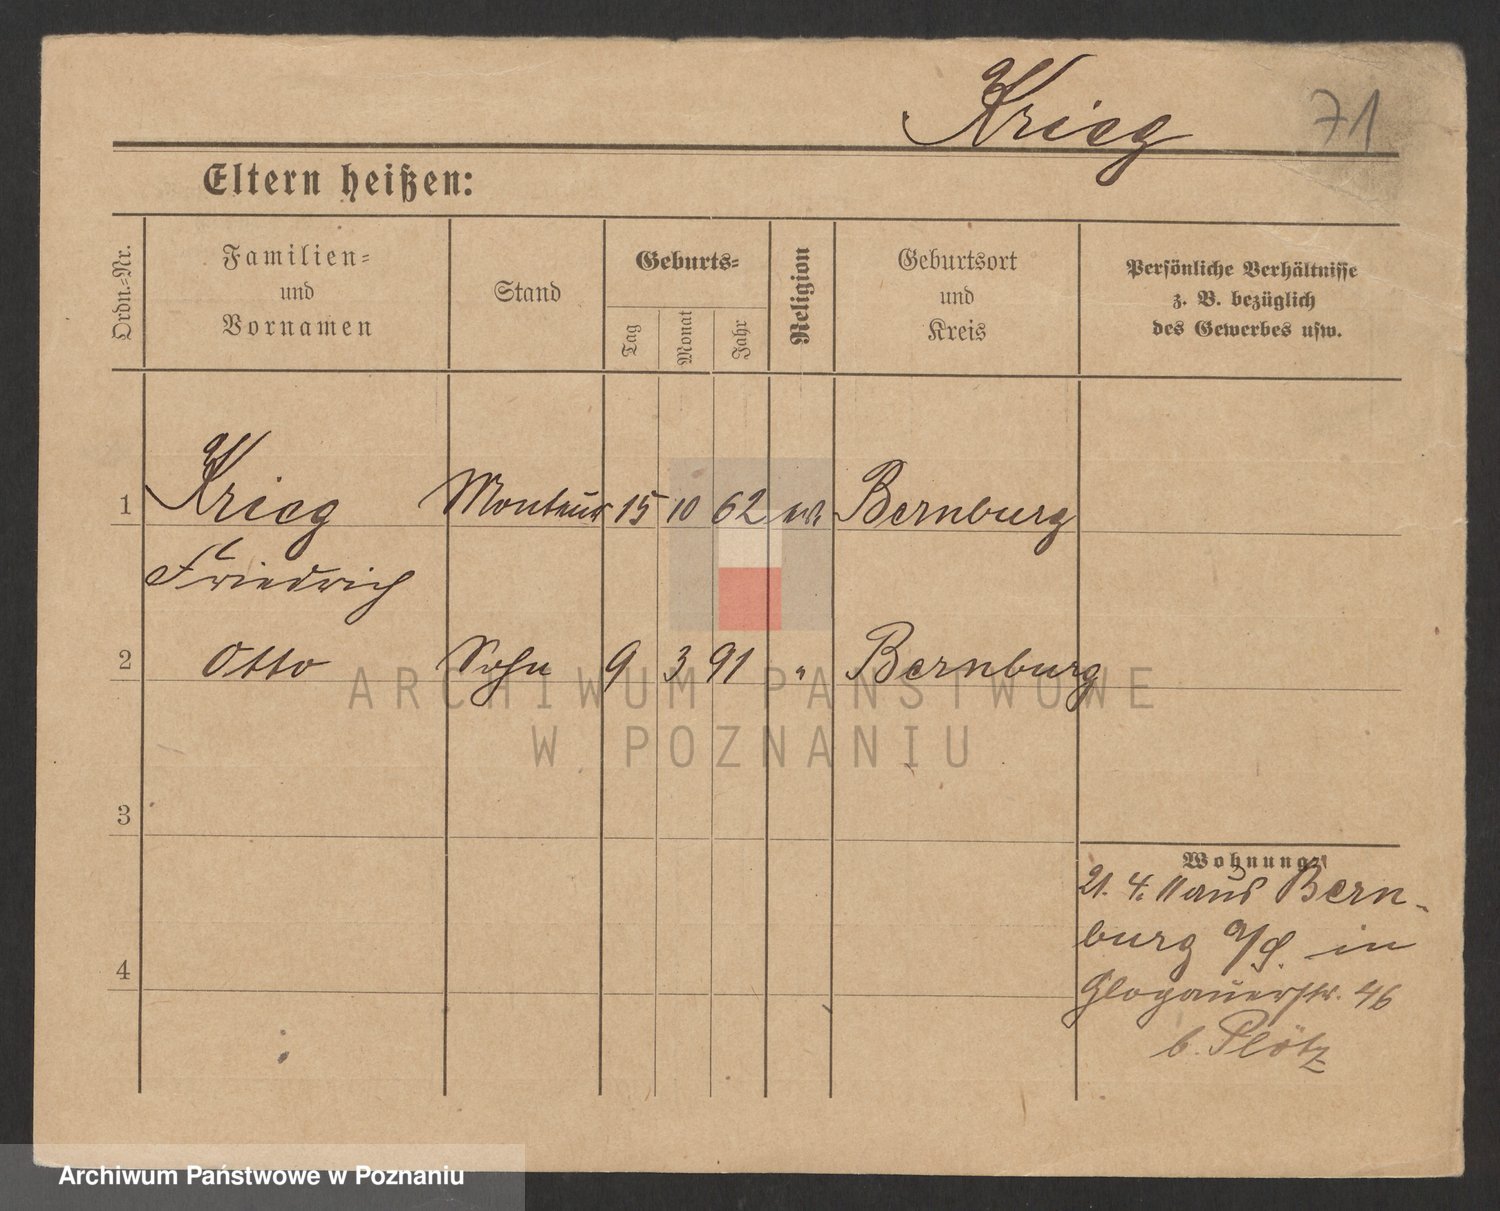 Krieg 71
Eltern heißen:
Ordn.-Nr. Familien- und Vornamen Stand Geburts- Tag Monat Jahr Religion Geburtsort und Kreis Persönliche Verhältnisse z. B. bezüglich des Gewerbes usw.
1 Krieg Monteur 15 10 62 ev. Bernburg
Friedrich
2 Otto Sohn 9 3 91 " Bernburg
ARCHIWUM PAŃSTWOWE
W POZNANIU
3
Wohnung:
21. 4. 11 aus Bern-
burg a/S. in
4 Glogauerstr. 46
b. Plötz
Archiwum Państwowe w Poznaniu